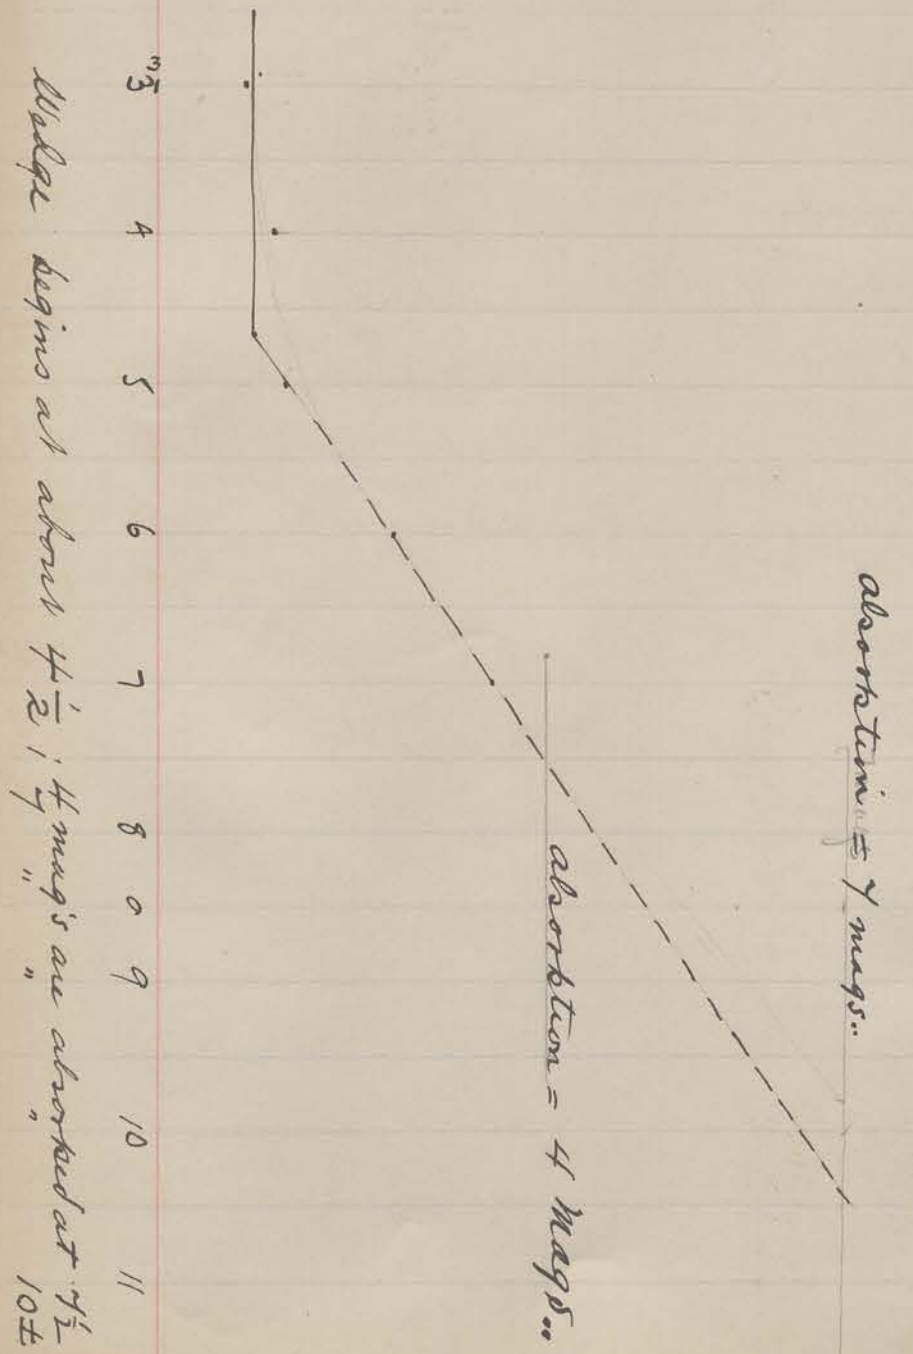 absorption = 7 mags..
absorption = 4 mags..
3 4 5 6 7 8 0 9 10 11
Wedge begins at about 4 1/2; 4 mag's are absorbed at 7 1/2
7 " " " 10±